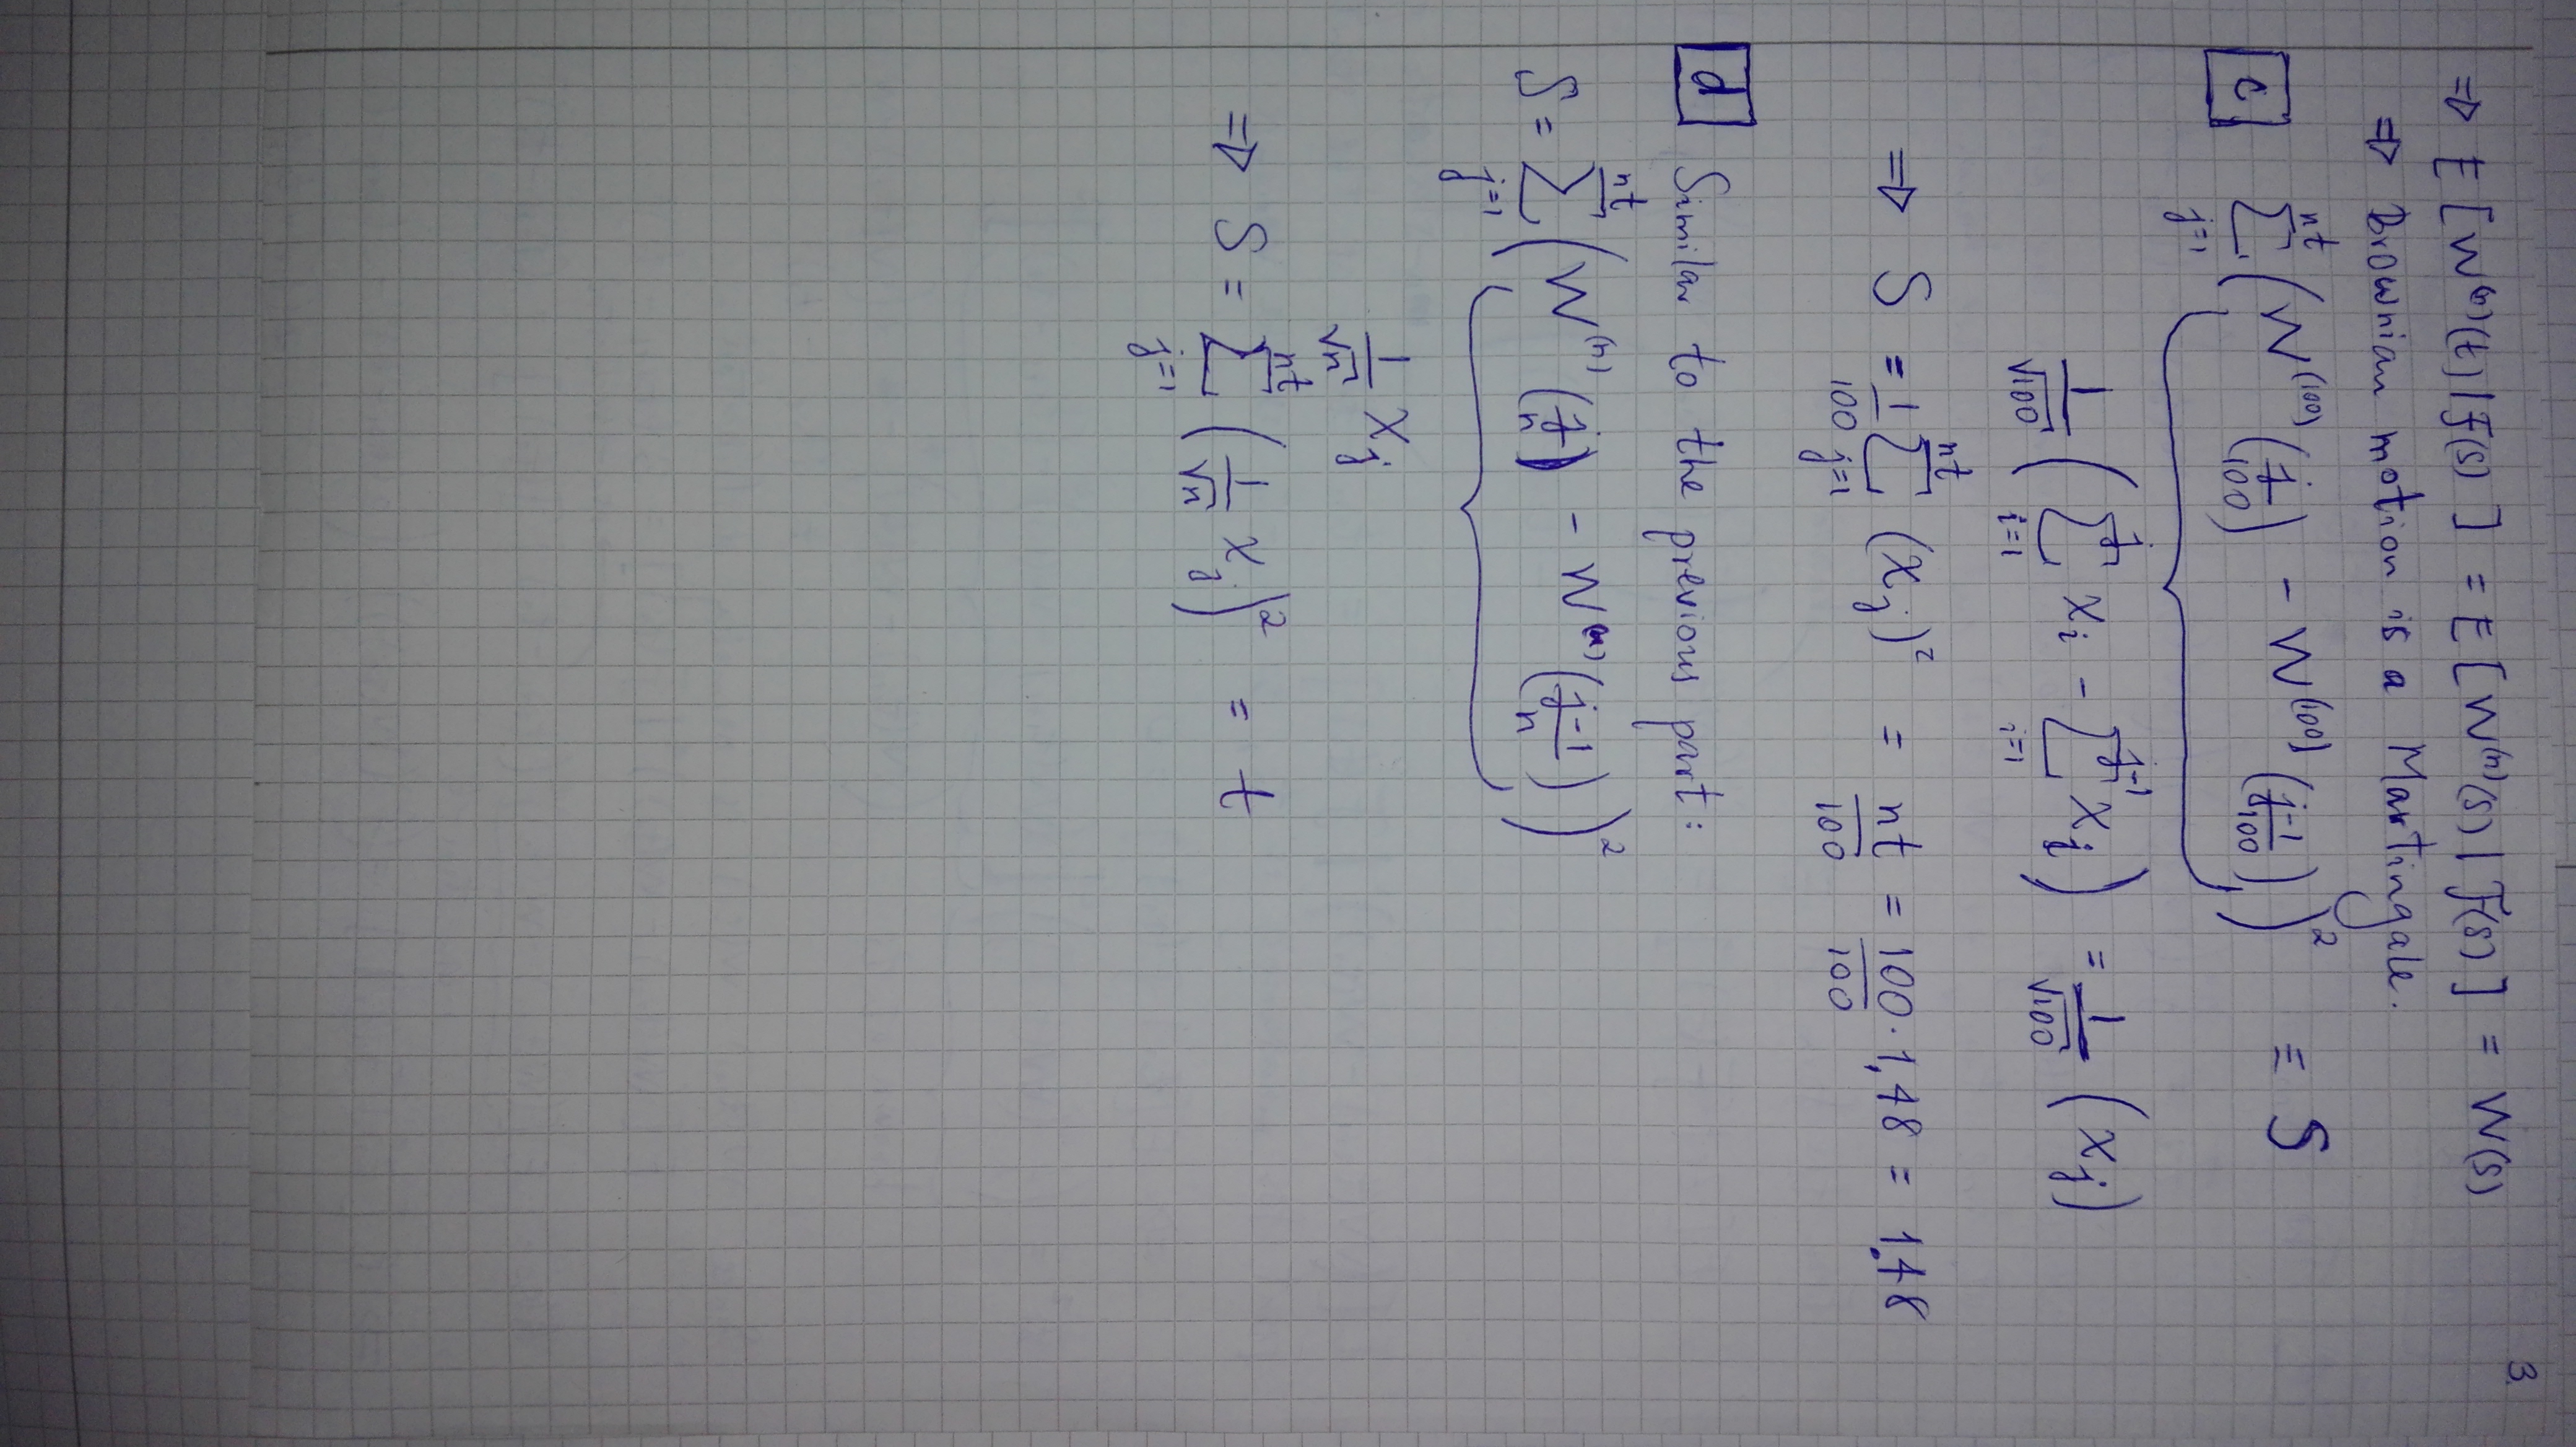 3.
⇒ E[W⁽ⁿ⁾(t)|F(s)] = E[W⁽ⁿ⁾(s)|F(s)] = W(s)
⇒ Brownian motion is a Martingale.
c ∑_{j=1}^{nt} (W⁽¹⁰⁰⁾(j/100) - W⁽¹⁰⁰⁾((j-1)/100))² = S
1/√100 (∑_{i=1}^{j} X_i - ∑_{i=1}^{j-1} X_i) = 1/√100 (X_j)
⇒ S = 1/100 ∑_{j=1}^{nt} (X_j)² = nt/100 = 100·1,48/100 = 1.48
d Similar to the previous part:
S = ∑_{j=1}^{nt} (W⁽ⁿ⁾(j/n) - W⁽ⁿ⁾((j-1)/n))²
1/√n X_j
⇒ S = ∑_{j=1}^{nt} (1/√n X_j)² = t